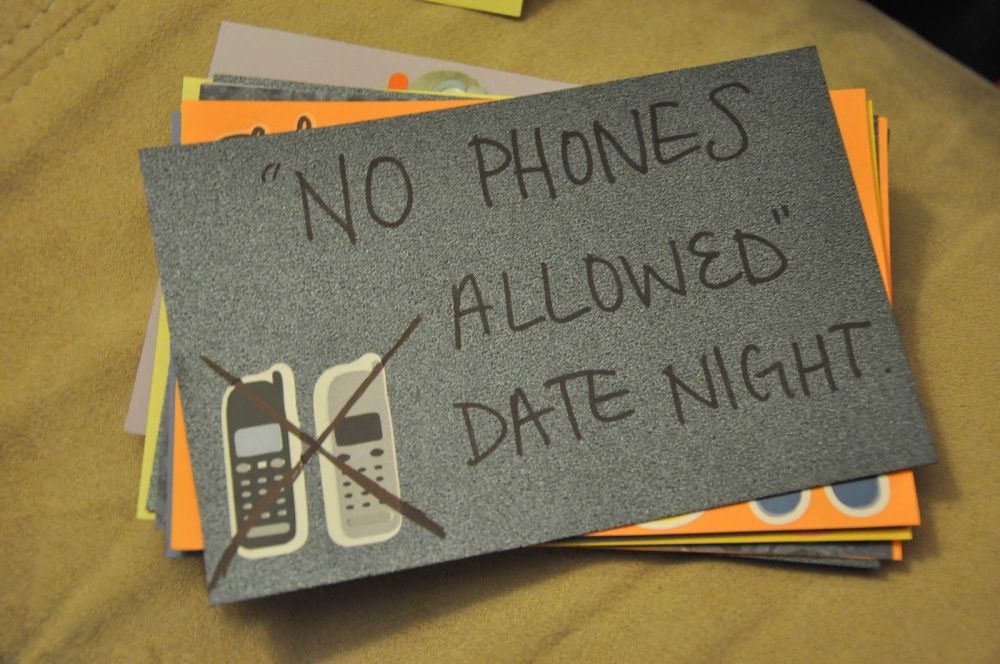 "NO PHONES
ALLOWED"
DATE NIGHT.